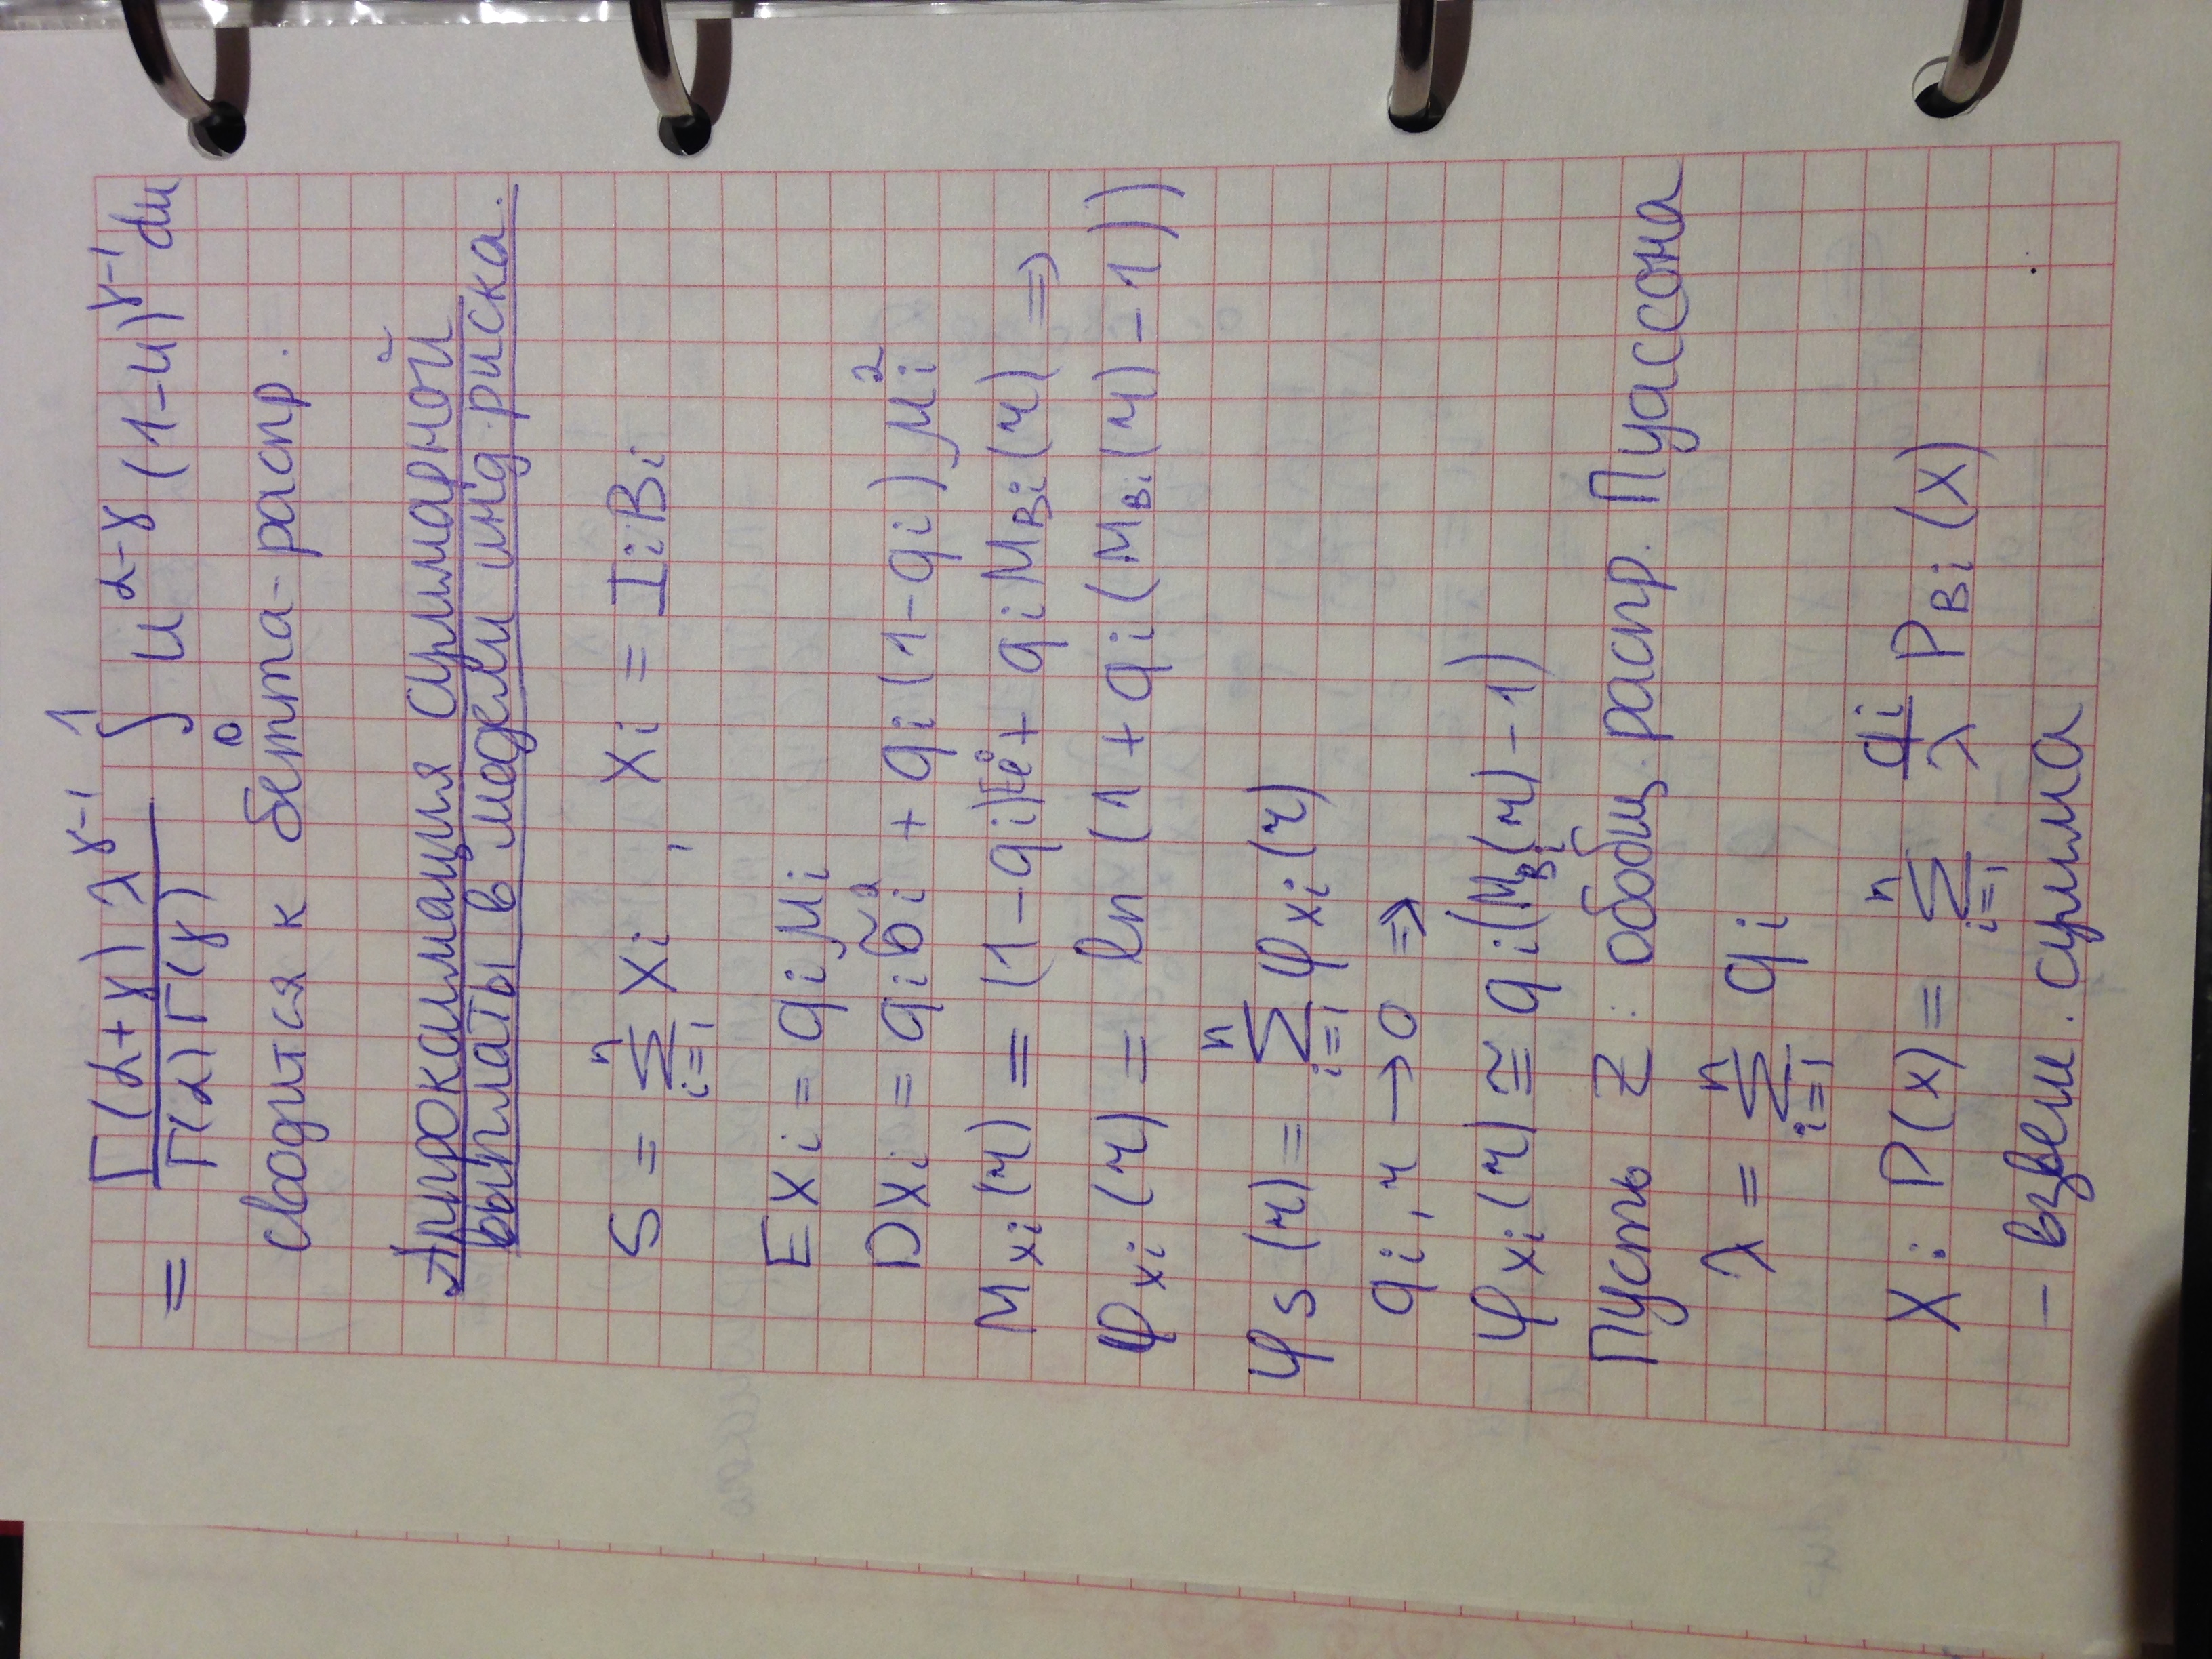 = Γ(α+γ) λ^(γ-1) / Γ(α)Γ(γ) ∫₀¹ u^(α-γ) (1-u)^(γ-1) du
сводится к бетта-распр.
Аппроксимация суммарной
выплаты в модели инд. риска.
S = Σ_{i=1}^{n} Xi , Xi = IiBi
EXi = qiμi
DXi = qiσ̃i² + qi(1-qi)μi²
Mxi(r) = (1-qi) + qiMBi(r) ⇒
φxi(r) = ln (1 + qi(MBi(r) - 1))
φs(r) = Σ_{i=1}^{n} φxi(r)
qi, r → 0 ⇒
φxi(r) ≅ qi(MBi(r) - 1)
Пусть Z : обобщ. распр. Пуассона
λ = Σ_{i=1}^{n} qi
X: P(x) = Σ_{i=1}^{n} qi/λ PBi(x)
- взвеш. сумма